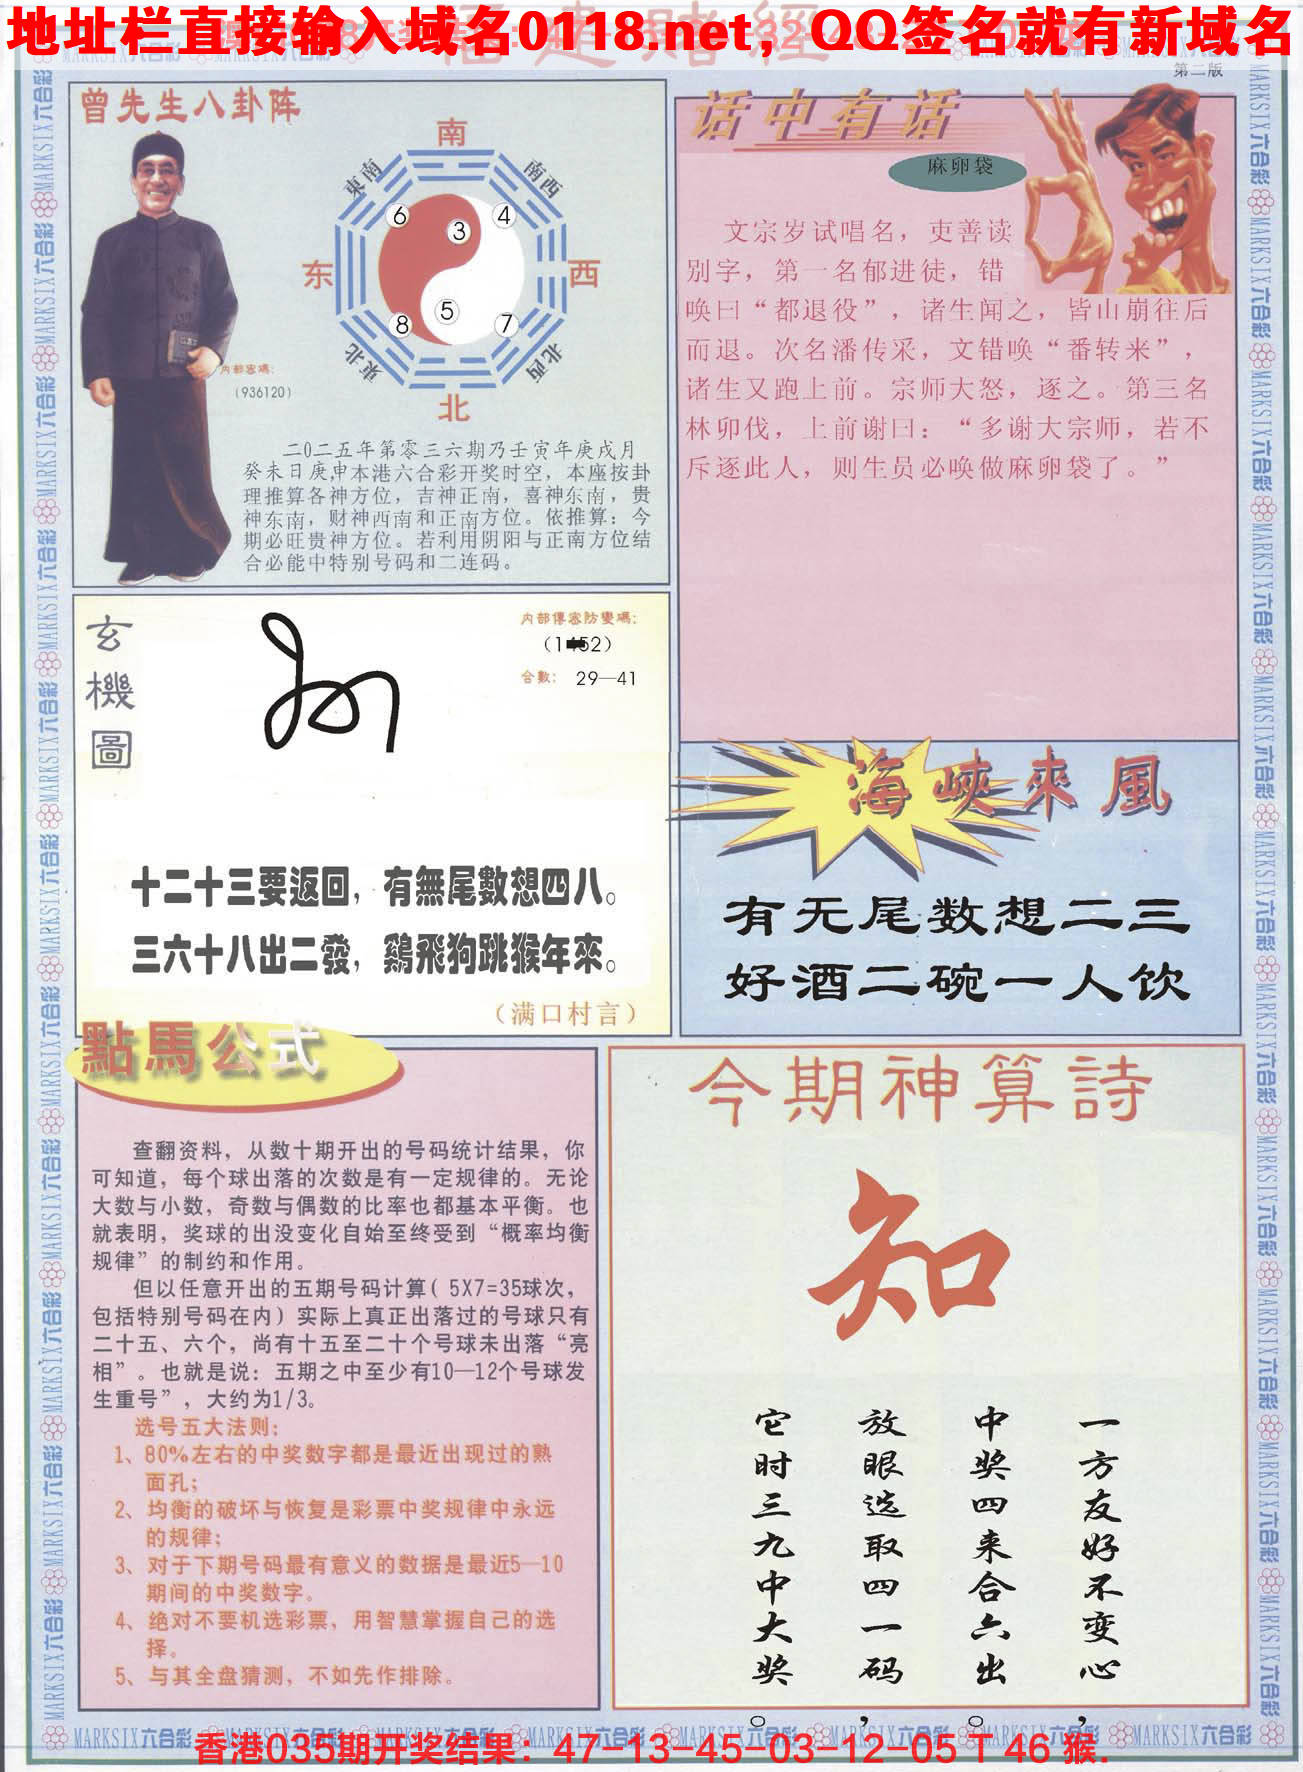 地址栏直接输入域名0118.net，QQ签名就有新域名
第二版
曾先生八卦阵
南
東南
南西
6
3
4
东
西
5
8
7
東北
北西
北
内部密碼:
(936120)
二0二五年第零三六期乃壬寅年庚戌月
癸未日庚申本港六合彩开奖时空，本座按卦
理推算各神方位，吉神正南，喜神东南，贵
神东南，财神西南和正南方位。依推算：今
期必旺贵神方位。若利用阴阳与正南方位结
合必能中特别号码和二连码。
话中有话
麻卵袋
文宗岁试唱名，吏善读
别字，第一名郁进徒，错
唤曰“都退役”，诸生闻之，皆山崩往后
而退。次名潘传采，文错唤“番转来”，
诸生又跑上前。宗师大怒，逐之。第三名
林卯伐，上前谢曰：“多谢大宗师，若不
斥逐此人，则生员必唤做麻卵袋了。”
玄機圖
内部傳密防變碼:
合數: 29—41
十二十三要返回，有無尾數想四八。
三六十八出二發，鷄飛狗跳猴年來。
（满口村言）
海峽來風
有无尾数想二三
好酒二碗一人饮
點馬公式
查翻资料，从数十期开出的号码统计结果，你
可知道，每个球出落的次数是有一定规律的。无论
大数与小数，奇数与偶数的比率也都基本平衡。也
就表明，奖球的出没变化自始至终受到“概率均衡
规律”的制约和作用。
但以任意开出的五期号码计算( 5X7=35球次，
包括特别号码在内) 实际上真正出落过的号球只有
二十五、六个，尚有十五至二十个号球未出落“亮
相”。也就是说：五期之中至少有10—12个号球发
生重号”，大约为1/3。
选号五大法则：
1、80%左右的中奖数字都是最近出现过的熟
面孔；
2、均衡的破坏与恢复是彩票中奖规律中永远
的规律；
3、对于下期号码最有意义的数据是最近5—10
期间的中奖数字。
4、绝对不要机选彩票，用智慧掌握自己的选
择。
5、与其全盘猜测，不如先作排除。
今期神算詩
知
一方友好不变心，
中奖四来合六出。
放眼选取四一码，
它时三九中大奖。
MARKSIX六合彩
香港035期开奖结果：47-13-45-03-12-05 T 46 猴.